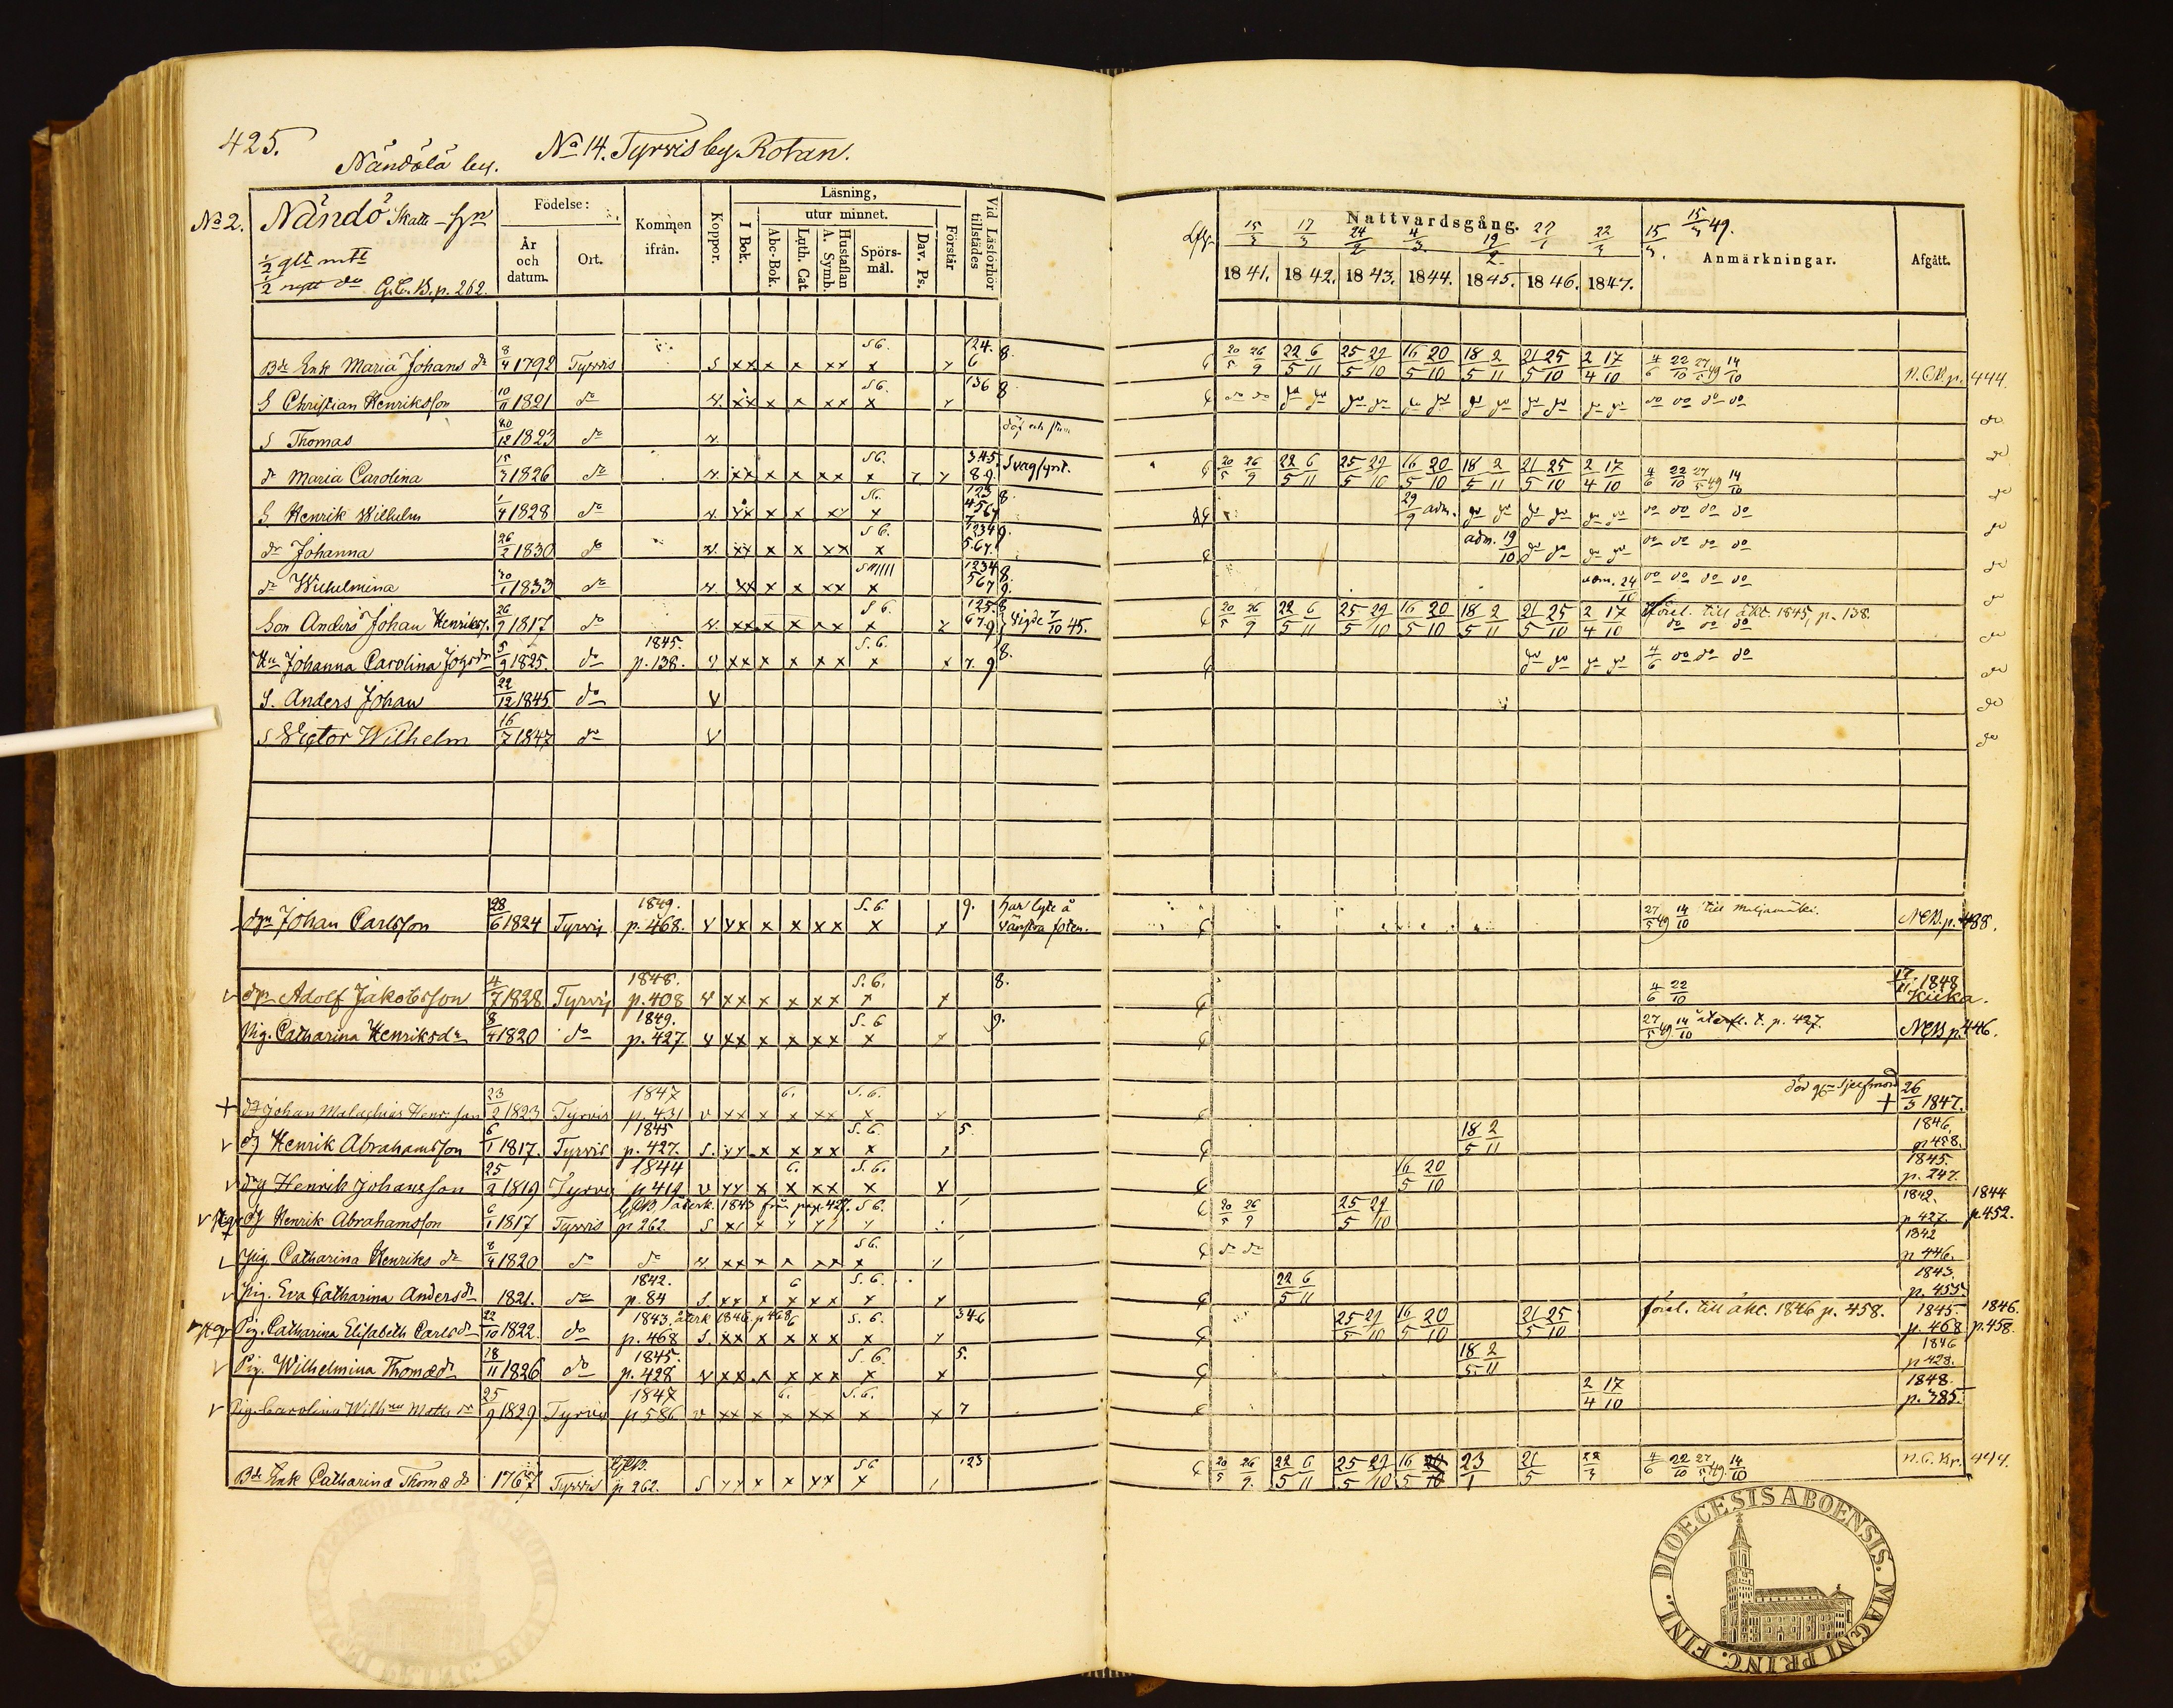 425.
Nändälä by. No 14. Tyrvis by Rotan.
No 2. Nändö Skatt
1/2 glt mtl
1/2 nytt do G.C.B. p. 262.
Födelse: År och datum. Ort. Kommen ifrån. Koppor. Läsning, I Bok. utur minnet. Abc-Bok. Luth. Cat. Hustaflan A. Symb. Spörsmål. Dav. Ps. Förstår Vid Läsförhör tillstädes
Nattvardsgång. Anmärkningar. Afgått.
15/3 17/3 24/2 4/3 19/2 22/3 15/3 15/3 49.
1841. 1842. 1843. 1844. 1845. 1846. 1847.
Bde Enk Maria Johans dr 8/4 1792 Tyrvis S xx x x xx x S6. 124. 6 8. 20/5 26/9 22/5 6/11 25/5 29/10 16/5 20/10 18/5 2/11 21/5 25/10 2/4 17/10 4/6 22/10 27/5 49 14/10 N.C.B. p. 444.
S Christian Henriksson 10/11 1821 do v. xx x x xx x S6. 136 8 do do do do do do do do do do do do do do do do do do
S Thomas 20/12 1823 do v. döf och stum do
dr Maria Carolina 15/3 1826 do v. xx x x xx x S6. 345. 89. Svagsynt. 20/5 26/9 22/5 6/11 25/5 29/10 16/5 20/10 18/5 2/11 21/5 25/10 2/4 17/10 4/6 22/10 27/5 49 14/10 do
S Henrik Wilhelm 1/4 1828 do v. xx x x xx x S6. 123 4567 8. 29/9 adm. do do do do do do do do do do
dr Johanna 26/2 1830 do v. xx x x xx x S6. 1234 567. 9. adm. 19/10 do do do do do do do do
dr Wilhelmina 30/1 1833 do v. xx x x xx x 1234 567 8. 9. adm. 24/10 do do do do
Son Anders Johan Henrikss. 26/9 1817 do v. xx x x xx x S6. 125. 67. 8 9 Vigde 7/10 45. 20/5 26/9 22/5 6/11 25/5 29/10 16/5 20/10 18/5 2/11 21/5 25/10 2/4 17/10 förel. till äkt. 1845, p. 138. do do do
Hu Johanna Carolina Johsdr 5/9 1825. do 1845. p. 138. v xx x x xx x S.6. x 7. 9 8. do do do do 4/6 do do do
S. Anders Johan 22/12 1845 do v do
S Victor Wilhelm 16/7 1847 do v do
dgn Johan Carlsson 28/6 1824 Tyrvis 1849. p. 468. v xx x x xx x S.6. x 9. har lyte å vänstra foten. 27/5 49 14/10 till Maljamäki. NCB. p. 488.
dgn Adolf Jakobsson 4/7 1828 Tyrvis 1848. p. 408 v xx x x xx x S.6. x 8. 4/6 22/10 17/11 1848 Kiika.
Pig. Catharina Henriksdr 8/4 1820 do 1849. p. 427. v xx x x xx x S.6 x 9. 27/5 49 14/10 återfl. t. p. 427. NCB p. 446.
dr Johan Malachias Henrsson 23/2 1823 Tyrvis 1847 p. 431 v xx x x xx x S.6. x död gm Sjelfmord 26/3 1847.
dg Henrik Abrahamsson 6/1 1817. Tyrvis 1845 p. 427. S. xx x x xx x S.6. x 5. 18/5 2/11 1846. p 458.
drg Henrik Johansson 25/2 1819 Tyrvis 1844 p 419 v xx x x xx x S.6. x 16/5 20/10 1845. p. 247.
dg Henrik Abrahamsson 6/1 1817 Tyrvis GCB. återk. 1843 från pag. 427. p 262. S xx x x xx x S6. 20/5 26/9 25/5 29/10 1842. p 427. 1844 p. 452.
Pig. Catharina Henriks dr 8/4 1820 do do v xx x x xx x S6. x do do 1842 p 446.
Pig. Eva Catharina Anders dr 1821. do 1842. p. 84 S. xx x x xx x S.6. x 22/5 6/11 1843. p. 455.
Pig. Catharina Elisabeth Carlsdr 22/10 1822. do 1843. återk 1846. p 468 p. 468 S. xx x x xx x S.6. x 346 25/5 29/10 16/5 20/10 21/5 25/10 förel. till äkt. 1846 p. 458. 1845. p. 468 1846. p. 458.
Pig. Wilhelmina Thomædr 18/11 1826 do 1845. p. 428 v xx x x xx x S.6. x 5. 18/5 2/11 1846 p 428.
Pig. Carolina Wilhna Matts dr 25/9 1829 Tyrvis 1847 p. 586 v xx x x xx x S.6. x 7 2/4 17/10 1848. p. 385.
Bde Enk Catharina Thomæ dr 1767 Tyrvis GCB. p 262. S xx x x xx x S6 123 20/5 26/9 22/5 6/11 25/5 29/10 16/5 20/10 23/1 21/5 22/3 4/6 22/10 27/5 49 14/10 N.C.Br. 444.
DIOECESIS ABOENSIS. MAGNI PRINC. FINL.